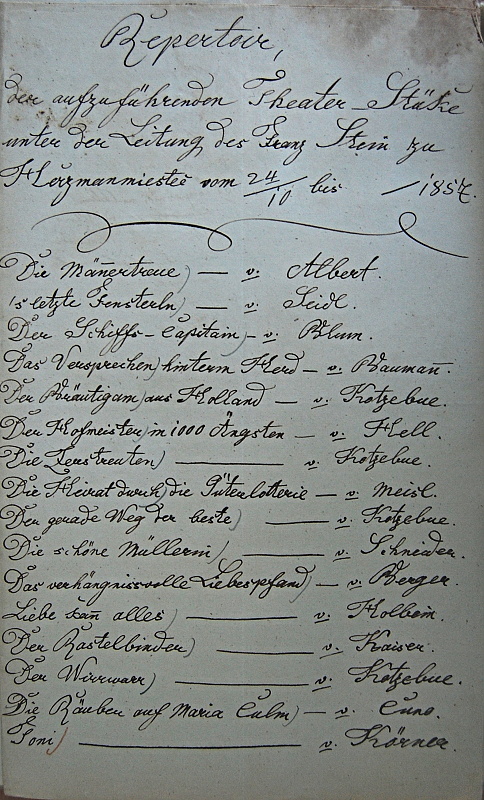 Repertoir,
der aufzuführenden Theater-Stüke
unter der Leitung des Franz Stein zu
Herzmanmiestec vom 24/10 bis /1857.
Die Mañertreue) — v. Albert.
's letzte Fensterln) — v. Seidl.
Der Schiffs-Capitain) — v. Blum.
Das Versprechen) hinterm Herd — v. Baumañ.
Der Bräutigam) aus Holland — v. Kotzebue.
Der Hofmeister) in 1000 Ängsten — v. Hell.
Die Zerstreuten) — v. Kotzebue.
Die Heirat durch) die Güterlotterie — v. Meisl.
Der gerade Weg der beste) — v. Kotzebue.
Die schöne Müllerin) — v. Schneider.
Das verhängnissvolle Liebespfand) — v. Berger.
Liebe kañ alles) — v. Holbein.
Der Rastelbinder) — v. Kaiser.
Der Wirrwarr) — v. Kotzebue.
Die Räuber auf Maria Culm) — v. Cuno.
Toni) — v. Körner.